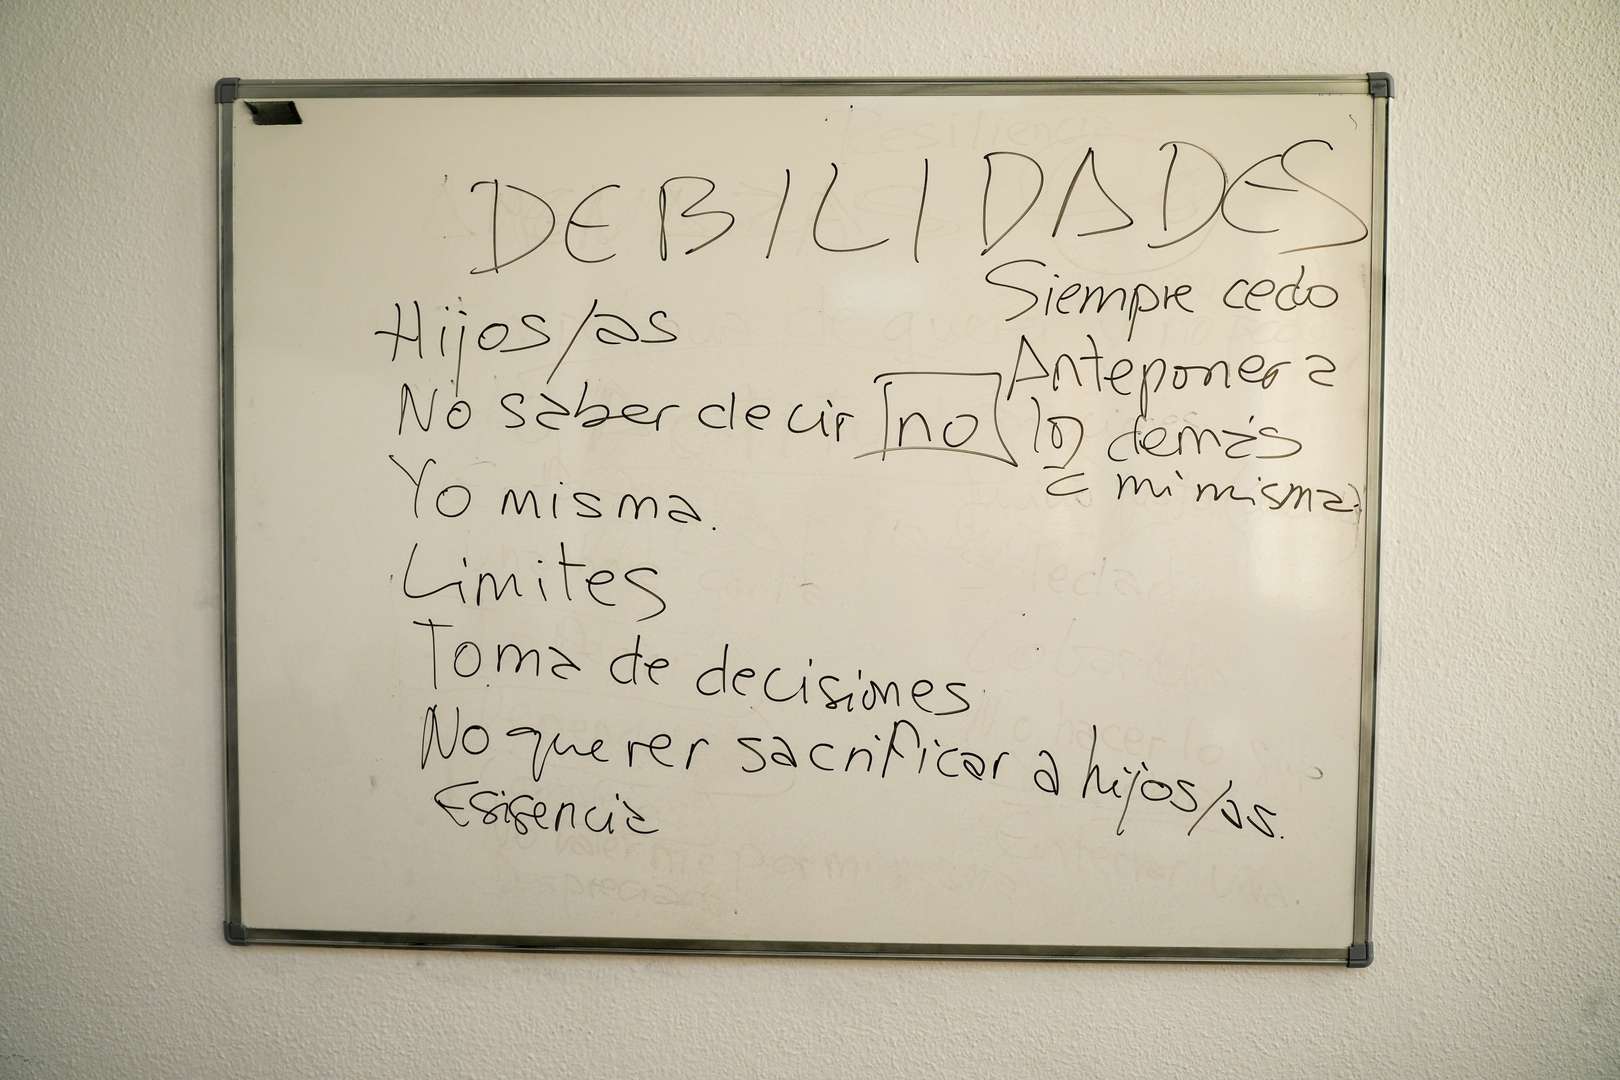 Resiliencia
DEBILIDADES
Hijos/as
No saber decir no
Yo misma.
Limites
Toma de decisiones
No querer sacrificar a hijos/as.
Esisencia
Siempre cedo
Anteponer a
los demás
a mi misma.